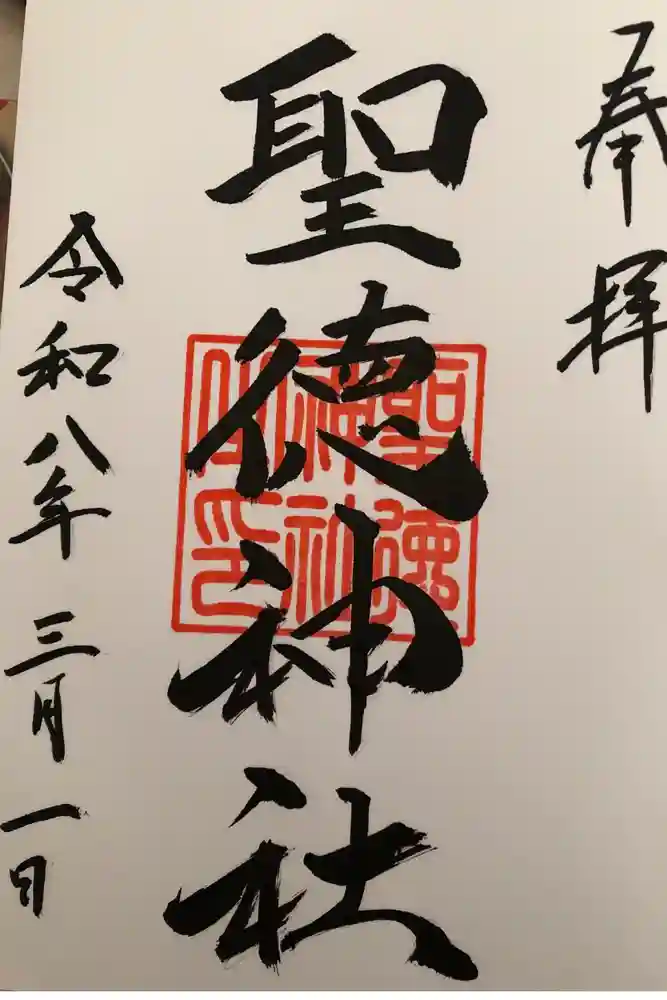 奉拝
聖徳神社
聖徳
神社
之印
令和八年三月一日